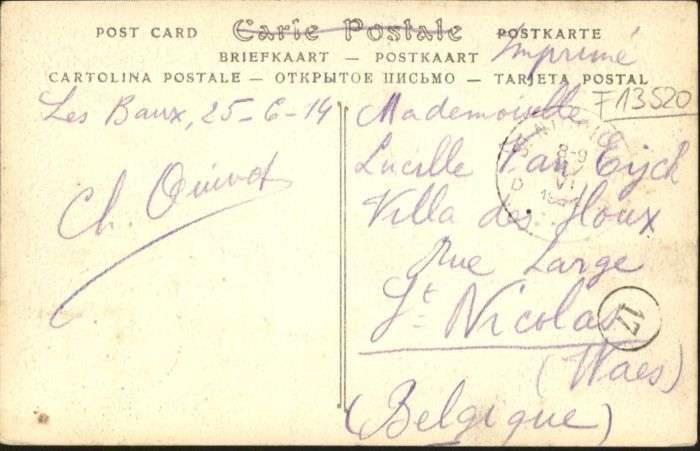 POST CARD Carte Postale POSTKARTE
BRIEFKAART — POSTKAART
Imprimé
CARTOLINA POSTALE — ОТКРЫТОЕ ПИСЬМО — TARJETA POSTAL
F13520
Les Baux, 25-6-14
Mademoiselle
Lucille Van Eyck
Villa des Houx
Rue Large
St Nicolas
(Waes)
(Belgique)
Ch.
8-9
VI
D
17